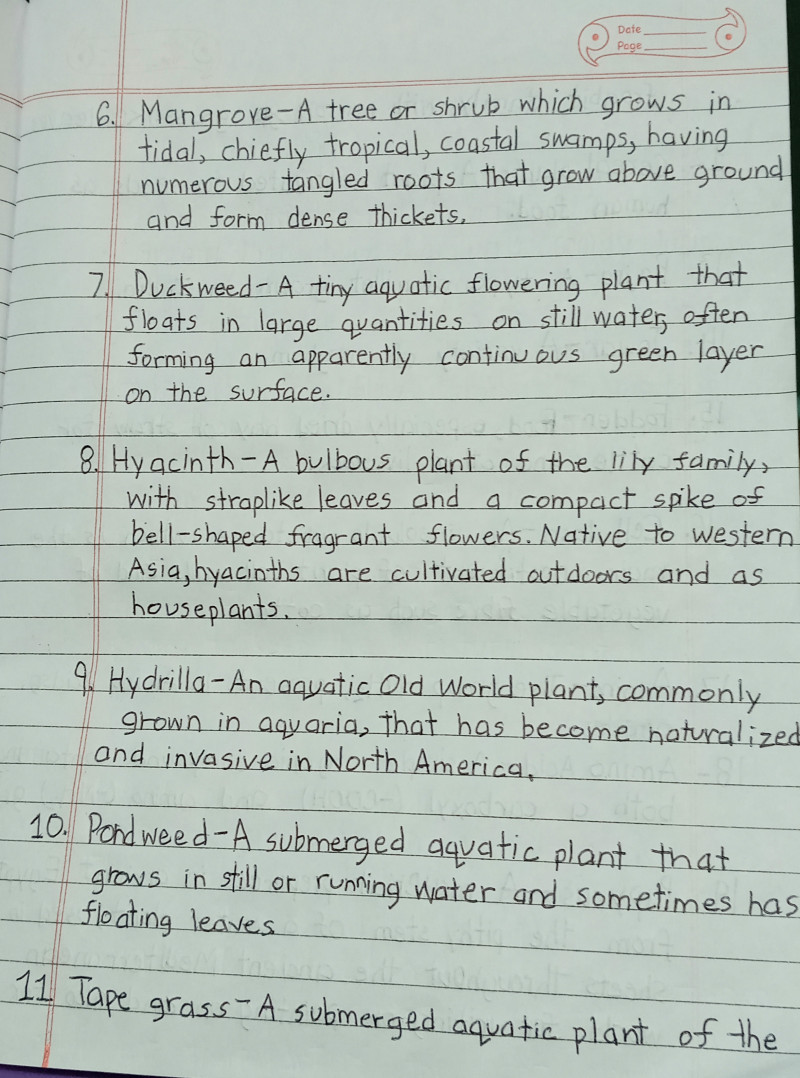 Date
Page
6. Mangrove-A tree or shrub which grows in
tidal, chiefly tropical, coastal swamps, having
numerous tangled roots that grow above ground
and form dense thickets.
7. Duckweed-A tiny aquatic flowering plant that
floats in large quantities on still water, often
forming an apparently continuous green layer
on the surface.
8. Hyacinth-A bulbous plant of the lily family,
with straplike leaves and a compact spike of
bell-shaped fragrant flowers. Native to western
Asia, hyacinths are cultivated outdoors and as
houseplants.
9. Hydrilla-An aquatic Old World plant, commonly
grown in aquaria, that has become naturalized
and invasive in North America.
10. Pondweed-A submerged aquatic plant that
grows in still or running water and sometimes has
floating leaves
11 Tape grass-A submerged aquatic plant of the